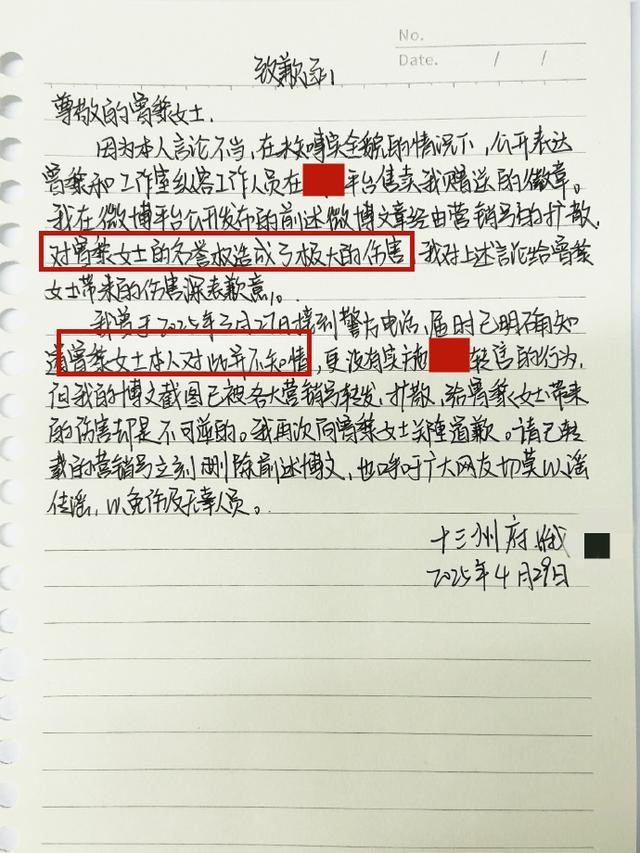 No.
Date. / /
致歉函
尊敬的曾黎女士.
因为本人言论不当,在未知事实全貌的情况下,公开表达
曾黎和工作室纵容工作人员在 平台售卖我赠送的徽章。
我在微博平台公开发布的前述微博文章经由营销号的扩散,
对曾黎女士的名誉权造成了极大的伤害,我对上述言论给曾黎
女士带来的伤害深表歉意。
我曾于2025年3月27日接到警方电话,届时已明确知
道曾黎女士本人对此并不知情,更没有实施 转售的行为,
但我的博文截图已被各大营销号转发、扩散,给曾黎女士带来
的伤害却是不可逆的。我再次向曾黎女士郑重道歉。请已转
载的营销号立刻删除前述博文,也呼吁广大网友切莫以谣
传谣,以免伤及无辜人员。
十三州府
2025年4月29日